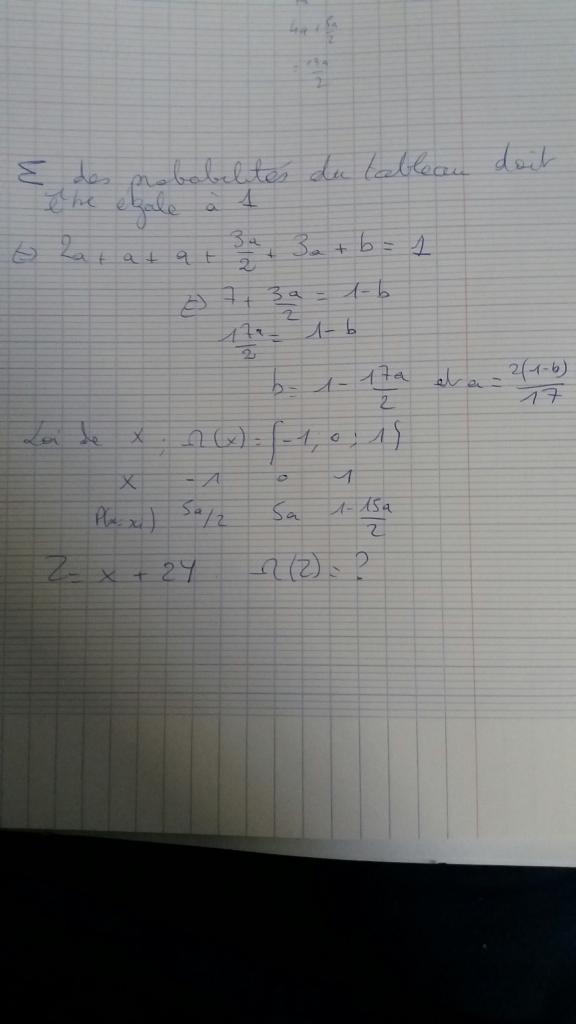 4a + 5a/2
= 13a/2
Σ des probabilités du tableau doit
être egale à 1
⇔ 2a + a + a + 3a/2 + 3a + b = 1
⇔ 7 + 3a/2 = 1 - b
17a/2 = 1 - b
b = 1 - 17a/2 et a = 2(1-b)/17
Loi de X : Ω(x) = {-1, 0 ; 1}
x -1 0 1
P(x=x₁) 5a/2 5a 1-15a/2
Z = x + 2Y Ω(Z) = ?